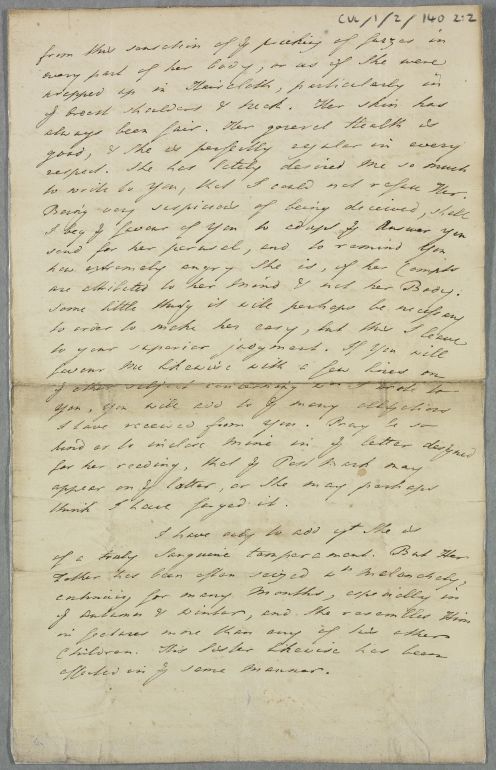 CUL/1/2/140 2:2
from this sensation of ye pricking of furzes in
every part of her body, or as if she were
wrapped up in Haircloth, particularly in
ye breast shoulders & neck. Her skin has
always been fair. Her general Health is
good, & she is perfectly regular in every
respect. She has lately desired me so much
to write to you, that I could not refuse Her.
Being very suspicious of being deceived, shall
I beg ye favour of you to adapt ye Answer you
send for her perusal, and to remind you
how extremely angry she is, if her Complts
are attributed to her mind & not her Body.
Some little thing it will perhaps be necessary
to order to make her easy, but this I leave
to your superior judgment. If you will
favour me likewise with a few lines on
ye other subject concerning wch I wrote to
you, you will add to ye many obligations
I have received from you. Pray be so
kind as to inclose mine in ye letter designed
for her reading, that ye Post mark may
appear on ye latter, or she may perhaps
think I have forged it.
I have only to add yt she is
of a truly sanguine temperament. But Her
Father has been often seized wth melancholy,
continuing for many Months, especially in
ye Autumn & Winter, and she resembles Him
in features more than any of his other
Children. His Sister likewise has been
affected in ye same manner.